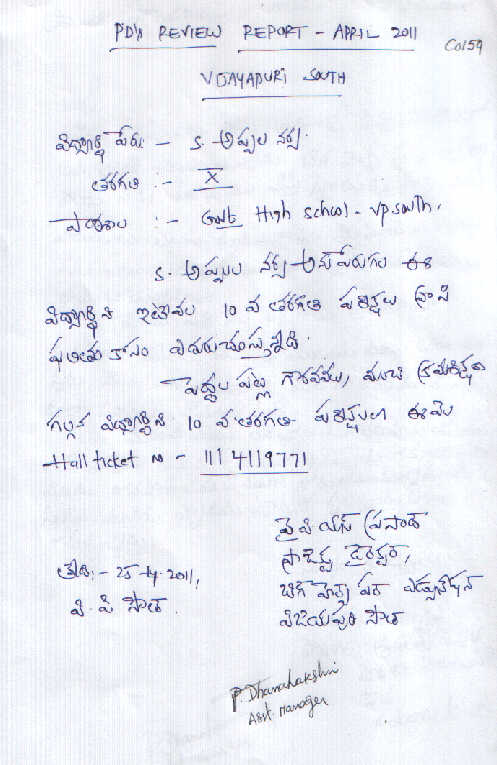 PDA REVIEW REPORT - APRIL 2011
Co159
VIJAYAPURI SOUTH
విద్యార్థి పేరు :- S. అప్పల నర్స.
తరగతి :- X
పాఠశాల :- Govt High school - vp.south.
S. అప్పల నర్స అను పేరుగల ఈ
విద్యార్థిని ఇటీవల 10 వ తరగతి పరీక్షలు వ్రాసి
ఫలితం కోసం ఎదురుచూస్తున్నది.
పెద్దల పట్ల గౌరవము, మంచి క్రమశిక్షణ
గల్గిన విద్యార్థిని 10 వ తరగతి పరీక్షలలో ఈమె
Hall ticket No - 1114119771
వై పి యస్ ప్రసాద్
ప్రాజెక్టు డైరెక్టర్,
బిగ్ హెల్ప్ ఫర్ ఎడ్యుకేషన్
విజయపురి సౌత్
తేది :- 25-4-2011,
వి. పి సౌత్.
P. Dhanalakshmi
Asst. Manager